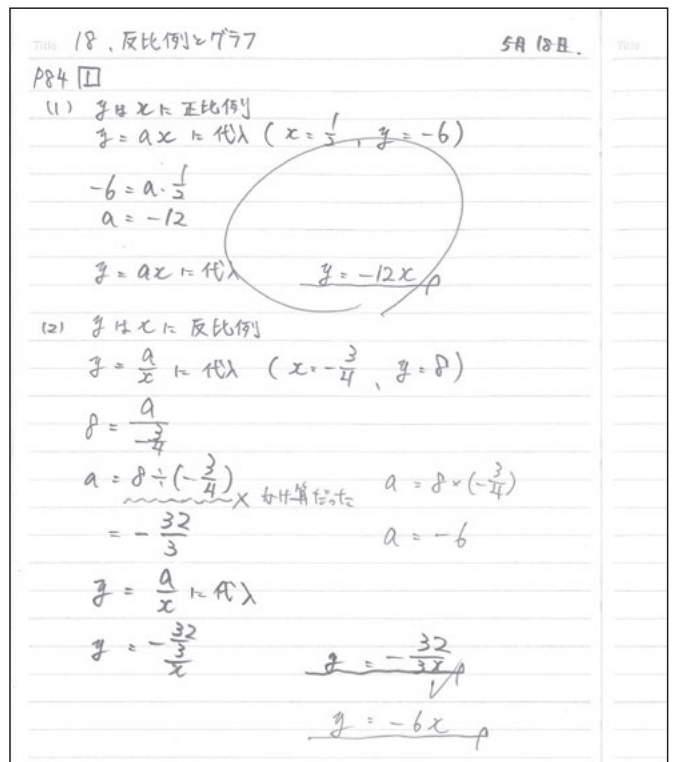 Title 18、反比例とグラフ 5月18日. Title
P84 1
(1) yはxに正比例
y = ax に代入 ( x = 1/2 , y = -6 )
-6 = a・1/2
a = -12
y = ax に代入 y = -12x
(2) yはxに反比例
y = a/x に代入 ( x = -3/4 , y = 8 )
8 = a/(-3/4)
a = 8÷(-3/4) × かけ算だった a = 8×(-3/4)
= -32/3 a = -6
y = a/x に代入
y = -(32/3)/x y = -32/3x
y = -6x